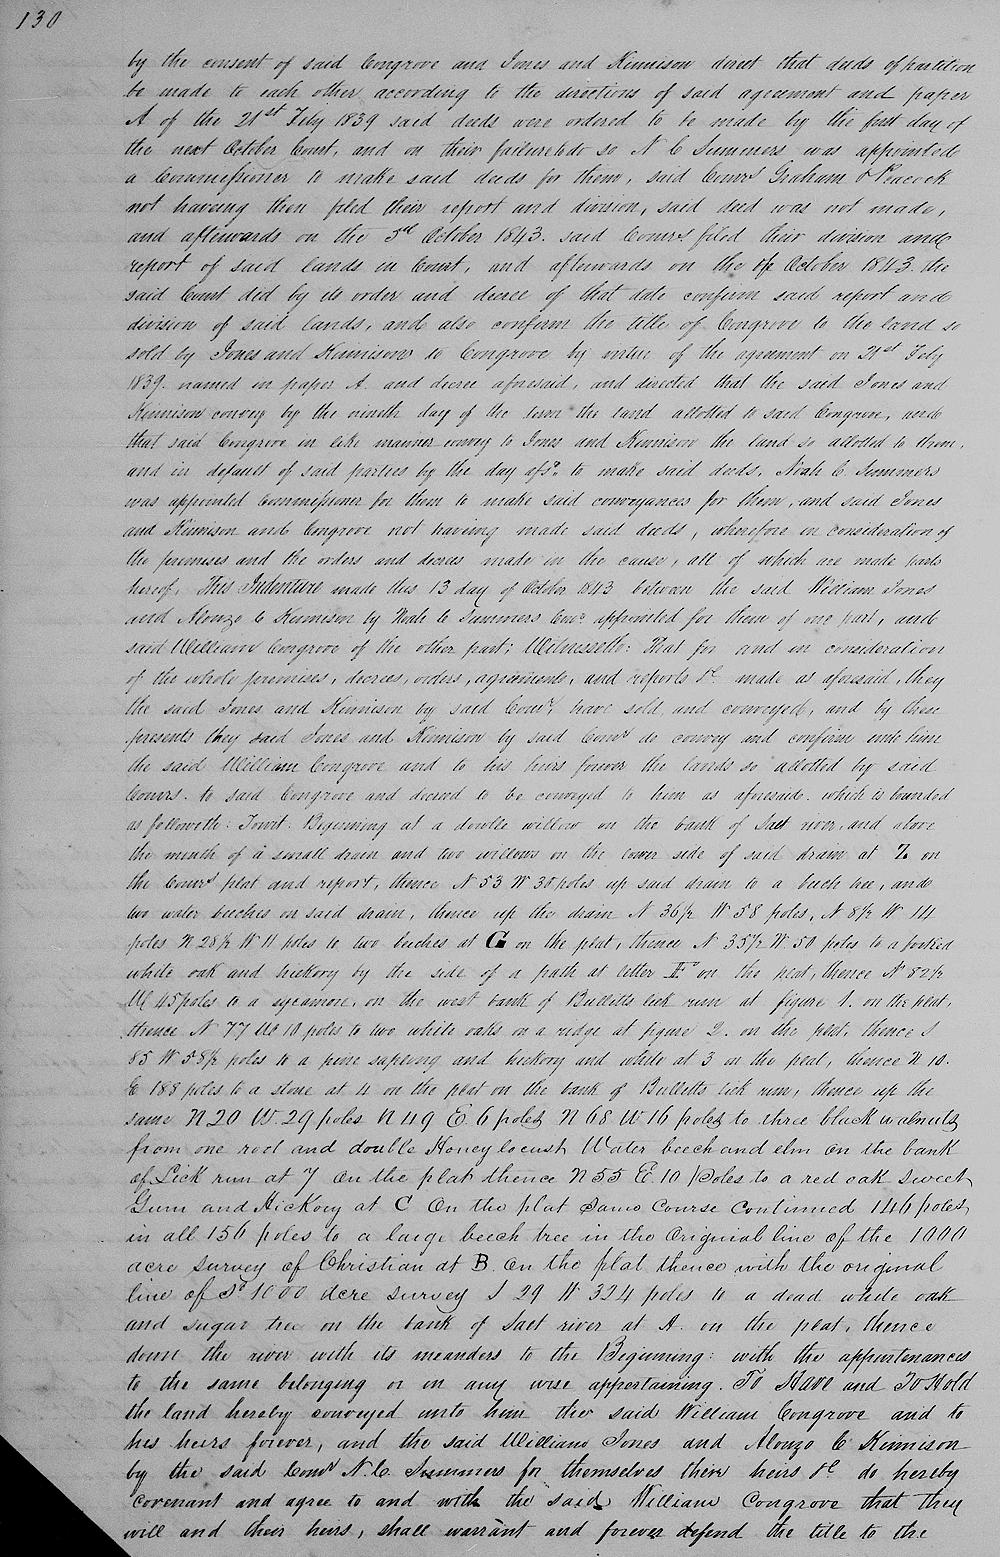 130
by the consent of said Congrove and Jones and Kennison direct that deeds of partition
be made to each other according to the directions of said agreement and paper
A of the 21st Feby 1839 said deeds were ordered to be made by the first day of
the next October Court, and on their failure to do so N C Summers was appointed
a Commissioner to make said deeds for them, said Comrs Graham & Peacock
not haveing then filed their report and division, said deed was not made,
and afterwards on the 3d October 1843. said Comrs filed their division and
report of said lands in Court, and afterwards on the October 1843. the
said Court did by its order and decree of that date confirm said report and
division of said lands, and also confirm the title of Congrove to the land so
sold by Jones and Kennison to Congrove by virtue of the agreement on 21st Feby
1839. named in paper A. and decree aforesaid, and directed that the said Jones and
Kennison convey by the nineth day of the term the land allotted to said Congrove, and
that said Congrove in like manner convey to Jones and Kennison the land so allotted to them,
and in default of said parties by the day afsd. to make said deeds, Noah C. Summers
was appointed Commissioner for them to make said conveyances for them, and said Jones
and Kennison and Congrove not having made said deeds, wherefore in consideration of
the premises and the orders and decrees made in the cause, all of which are made parts
hereof, This Indenture made this 13 day of October 1843 between the said William Jones
and Alonzo C Kennison by Noah C Summers Comr appointed for them of one part, and
said William Congrove of the other part; Witnesseth: That for and in consideration
of the whole premises, decrees, orders, agreements, and reports &c made as aforesaid, they
the said Jones and Kennison by said Comr, have sold and conveyed, and by these
presents they said Jones and Kennison by said Comr do convey and confirm unto him
the said William Congrove and to his heirs forever the lands so allotted by said
Comrs. to said Congrove and decreed to be conveyed to him as aforesaid. which is bounded
as followeth: Towit: Beginning at a double willow on the bank of Salt river, and above
the mouth of a small drain and two willows on the lower side of said drain at Z on
the Comrs plat and report, thence N 53 W 30 poles up said drain to a beech tree, and
two water beeches on said drain, thence up the drain N 36½ W 58 poles, N 8½ W 14
poles N 28½ W 11 poles to two beeches at G on the plat, thence N 35½ W. 50 poles to a forked
white oak and hickory by the side of a path at letter F on the plat, thence N 82½
W 45 poles to a sycamore, on the west bank of Bullitts lick run at figure 1. on the plat,
thence N 77 W 10 poles to two white oaks on a ridge at figure 2. on the plat, thence S
85 W 58½ poles to a pine sapling and hickory and white at 3 on the plat, thence N 10.
E 188 poles to a stone at 4 on the plat on the bank of Bullitts lick run, thence up the
same N 20 W. 29 poles N 49 E. 6 poles N 68 W 16 poles to three black walnuts
from one root and double Honey locust Water beech and elm on the bank
of Lick run at 7 on the plat thence N 55 E. 10 poles to a red oak sweet
Gum and Hickory at C On the plat same course continued 146 poles
in all 156 poles to a large beech tree in the Original line of the 1000
acre survey of Christian at B. on the plat thence with the original
line of sd 1000 acre survey S 29 W 324 poles to a dead white oak
and sugar tree on the bank of Salt river at A. on the plat, thence
down the river with its meanders to the Beginning: with the appurtenances
to the same belonging or in any wise appertaining. To Have and To Hold
the land hereby conveyed unto him the said William Congrove and to
his heirs forever, and the said William Jones and Alonzo C Kennison
by the said Comr N. C. Summers for themselves their heirs &c do hereby
covenant and agree to and with the said William Congrove that they
will and their heirs, shall warrant and forever defend the title to the